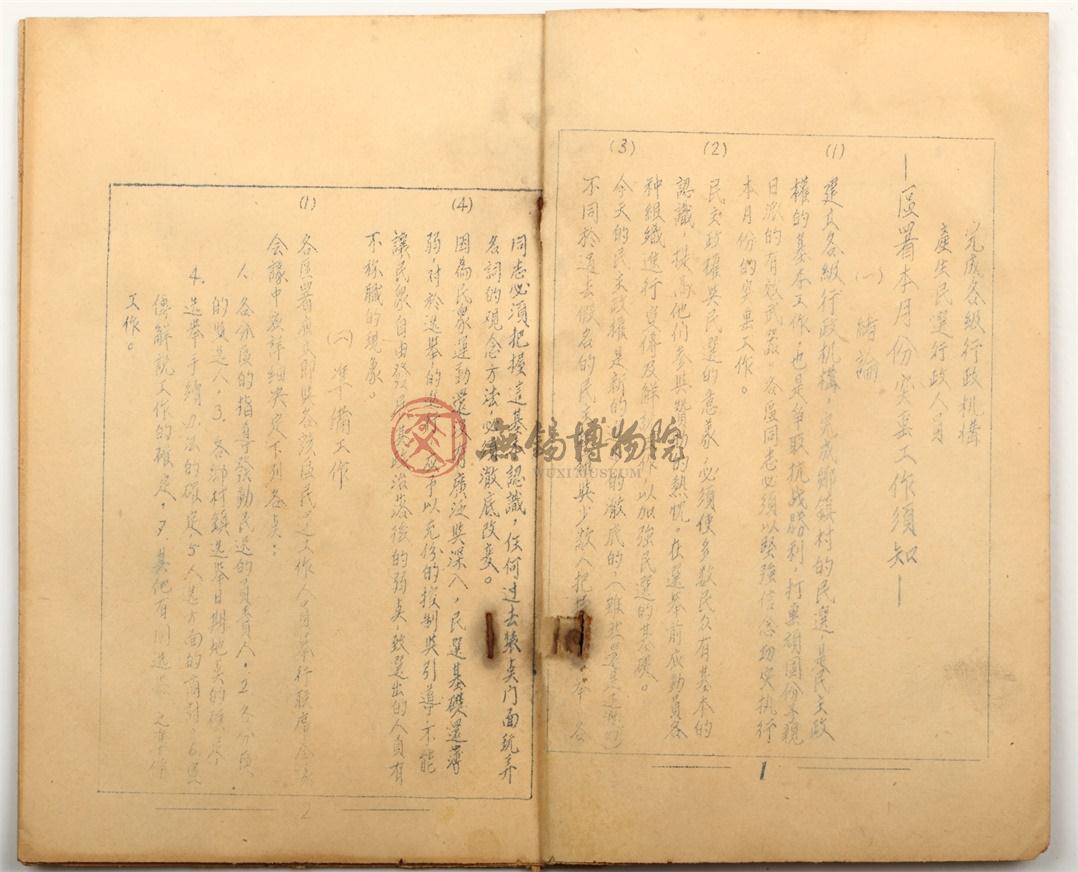 完成各級行政机構
產生民選行政人員
—區署本月份实要工作須知—
(一) 緒論
(1) 建立各級行政机構,完成鄉鎮村的民選,是民主政
權的基本工作,也是爭取抗战勝利,打擊頑固份子親
日派的有效武器。各區同志必須以堅強信念切实执行
本月份的实要工作。
(2) 民主政權與民選的意義,必須使多数民众有基本的
認識,提高他們参與贊助的热忱,在選举前应動員各
種組織進行宣傳及解 以加強民選的基礎。
(3) 今天的民主政權是新的 的澈底的,(雖然還是
不同於過去假名的民主 與少数人把 各
(4) 同志必須把握這基 認識,任何过去裝点门面玩弄
名詞的观念方法,必須澈底改变。
因為民众運動還沒有廣泛與深入,民選基礎還薄
弱,对於選举的 应予以充份的控制與引導,不能
讓民众自由發展,其政治落後的弱点,致選出的人員有
不称職的現象。
(二) 準備工作
(1) 各區署 即與各該區民运工作人員举行联席会议
会議中应詳細决定下列各点:
1、各分區的指導發動民選的負責人,2、各分區
的監選人,3、各鄉村鎮選举日期地点的確定
4、選举手續办法的確定,5、人選方面的商討,6、宣
傳解說工作的確定,7、其他有関選举 之準備
工作。
1
2
無錫博物院
WUXI MUSEUM